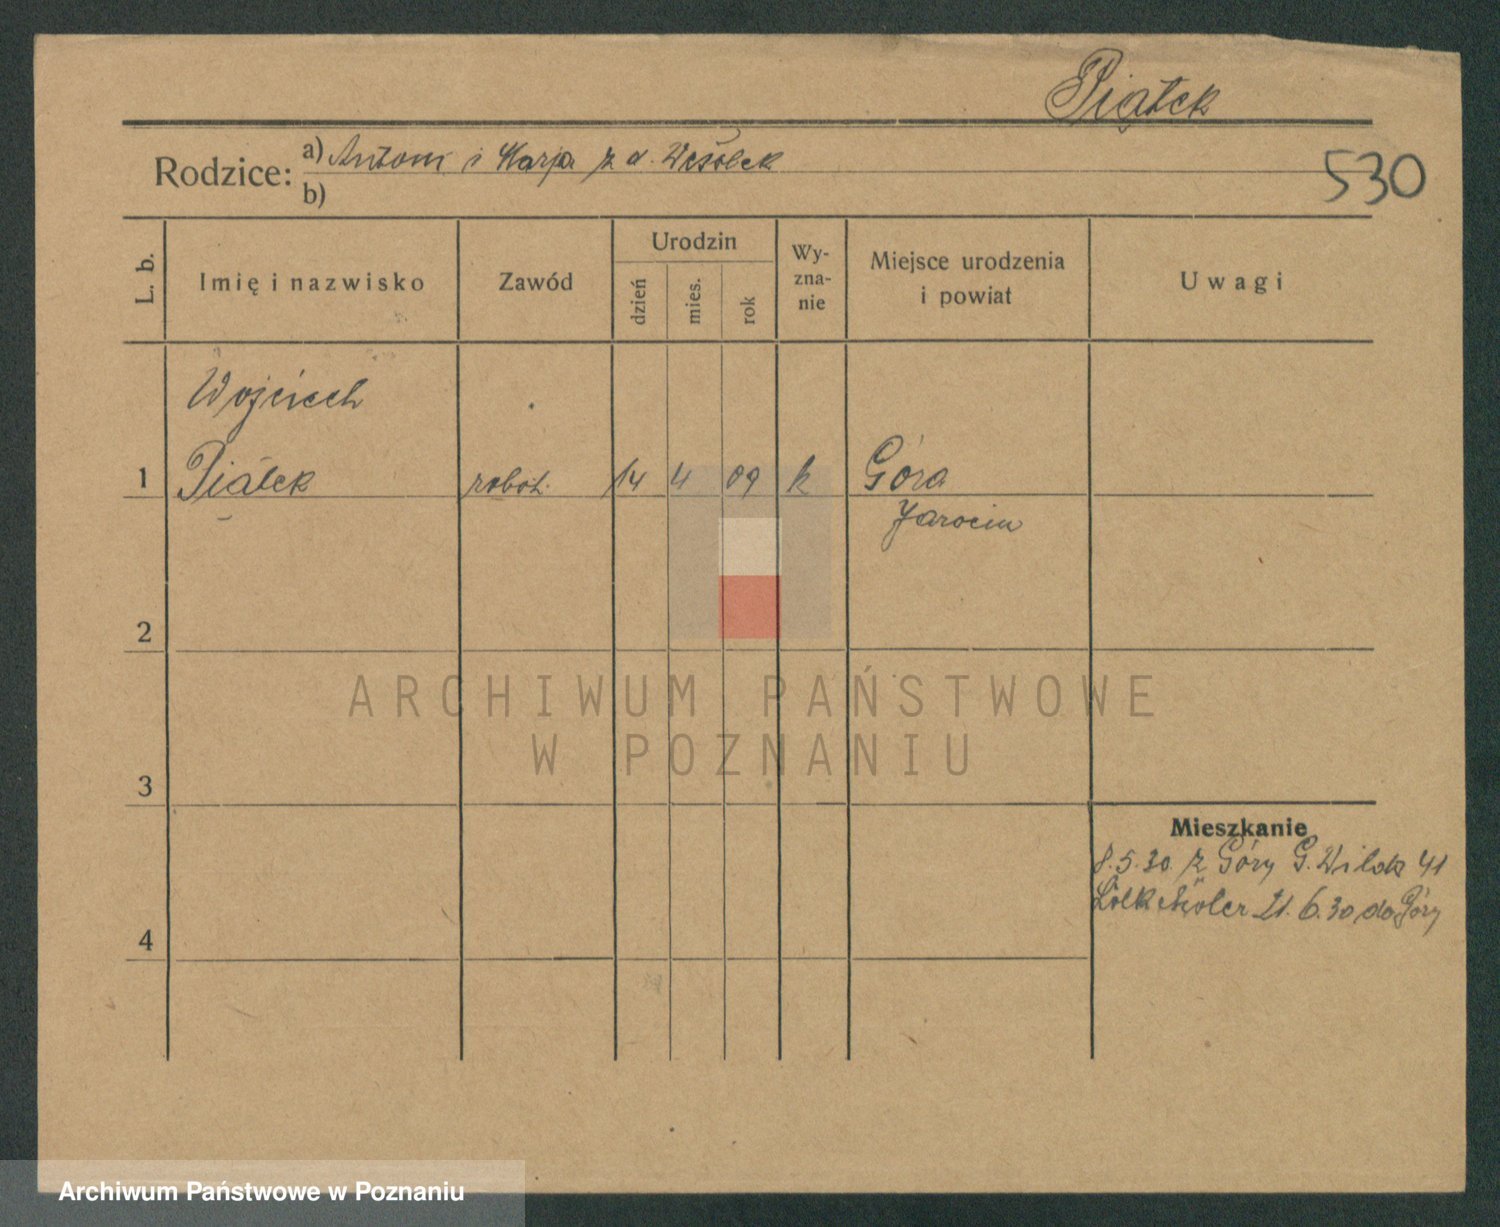 Piątek
Rodzice: a) Antoni i Marja z d. Wesołek
b)
530
L. b.
Imię i nazwisko
Zawód
Urodzin
dzień
mies.
rok
Wy-
zna-
nie
Miejsce urodzenia
i powiat
Uwagi
Wojciech
1 Piątek robot. 14 4 09 k Góra
Jarocin
2
ARCHIWUM PAŃSTWOWE
W POZNANIU
3
Mieszkanie
8.5.30. z Góry G. Wilda 41
21. 6.30 do Góry
4
Archiwum Państwowe w Poznaniu